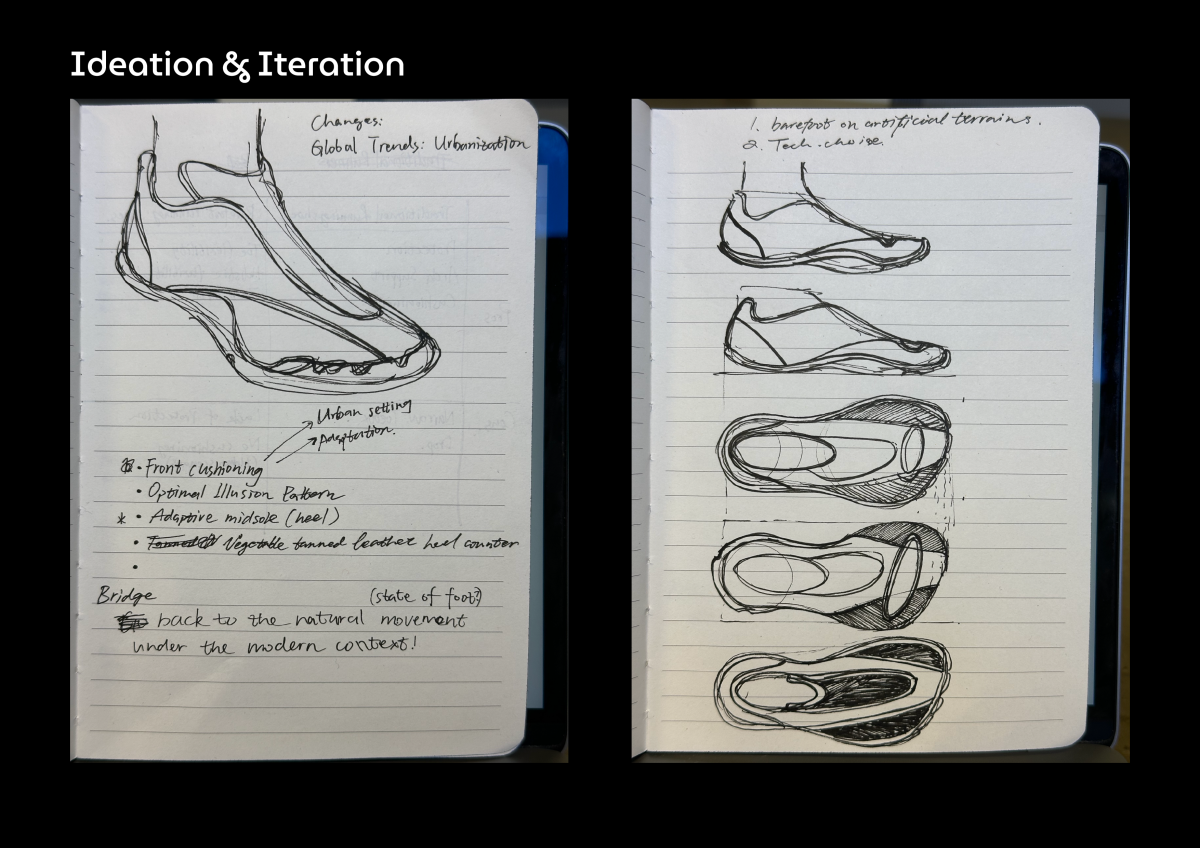 Ideation & Iteration
Changes:
Global Trends: Urbanization
Urban setting
Adaptation.
• Front cushioning
• Optimal Illusion Pattern
* • Adaptive midsole (heel)
• Vegetable tanned leather heel counter
•
Bridge (state of foot?)
back to the natural movement
under the modern context!
1. barefoot on artificial terrains.
2. Tech. choise.